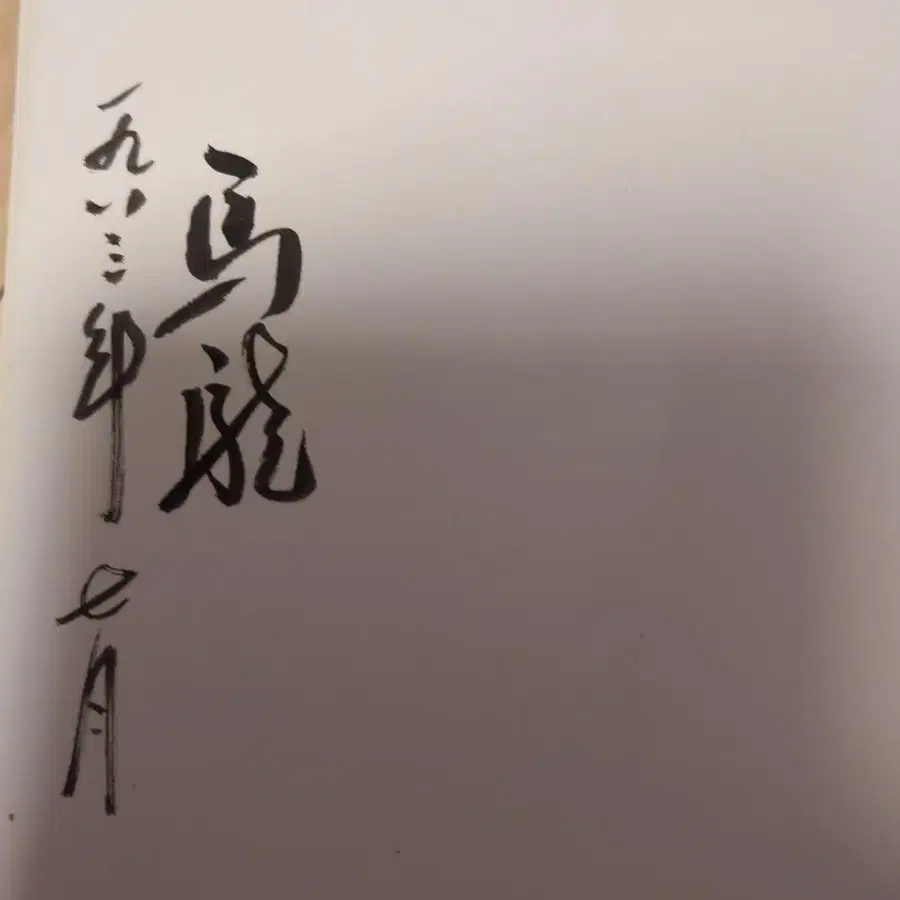 馬龍
一九八三年七月